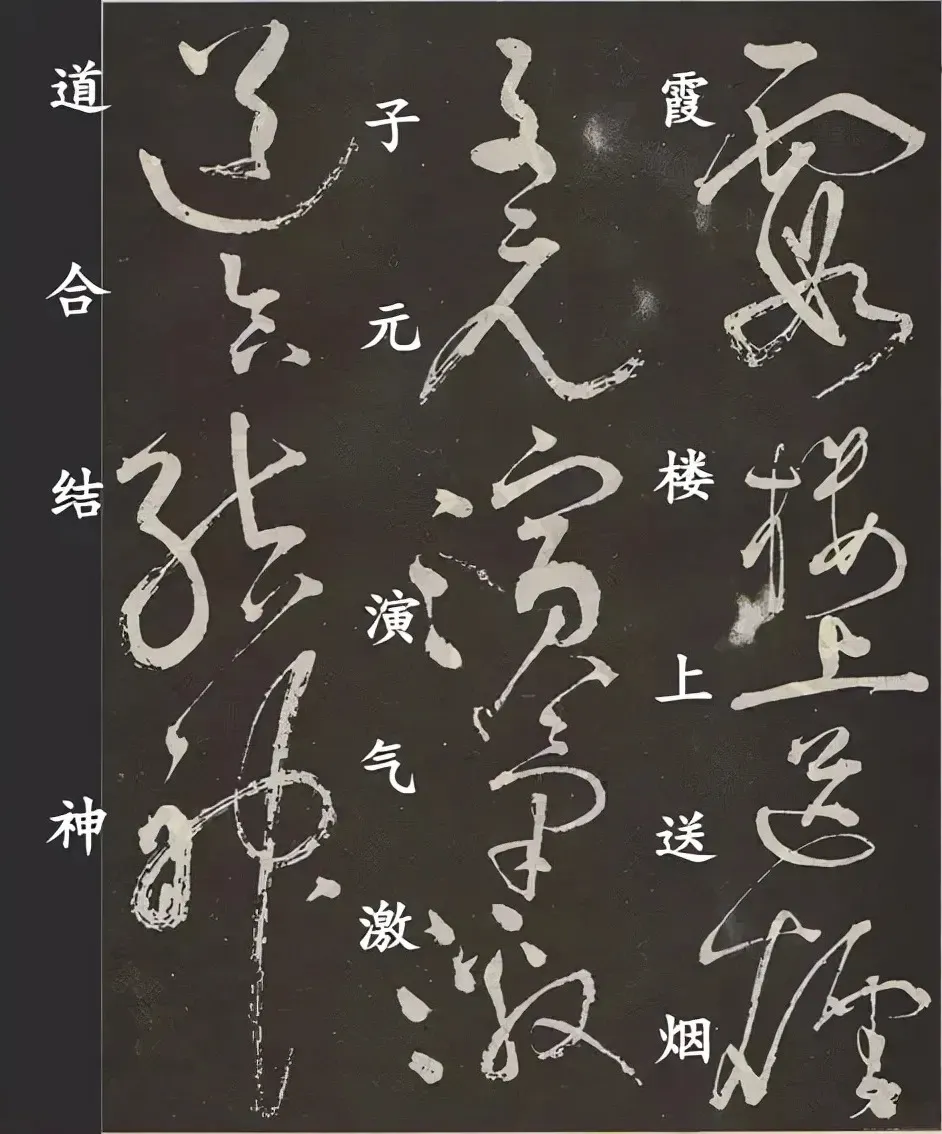 霞楼上送烟
子元演气激
道合结神